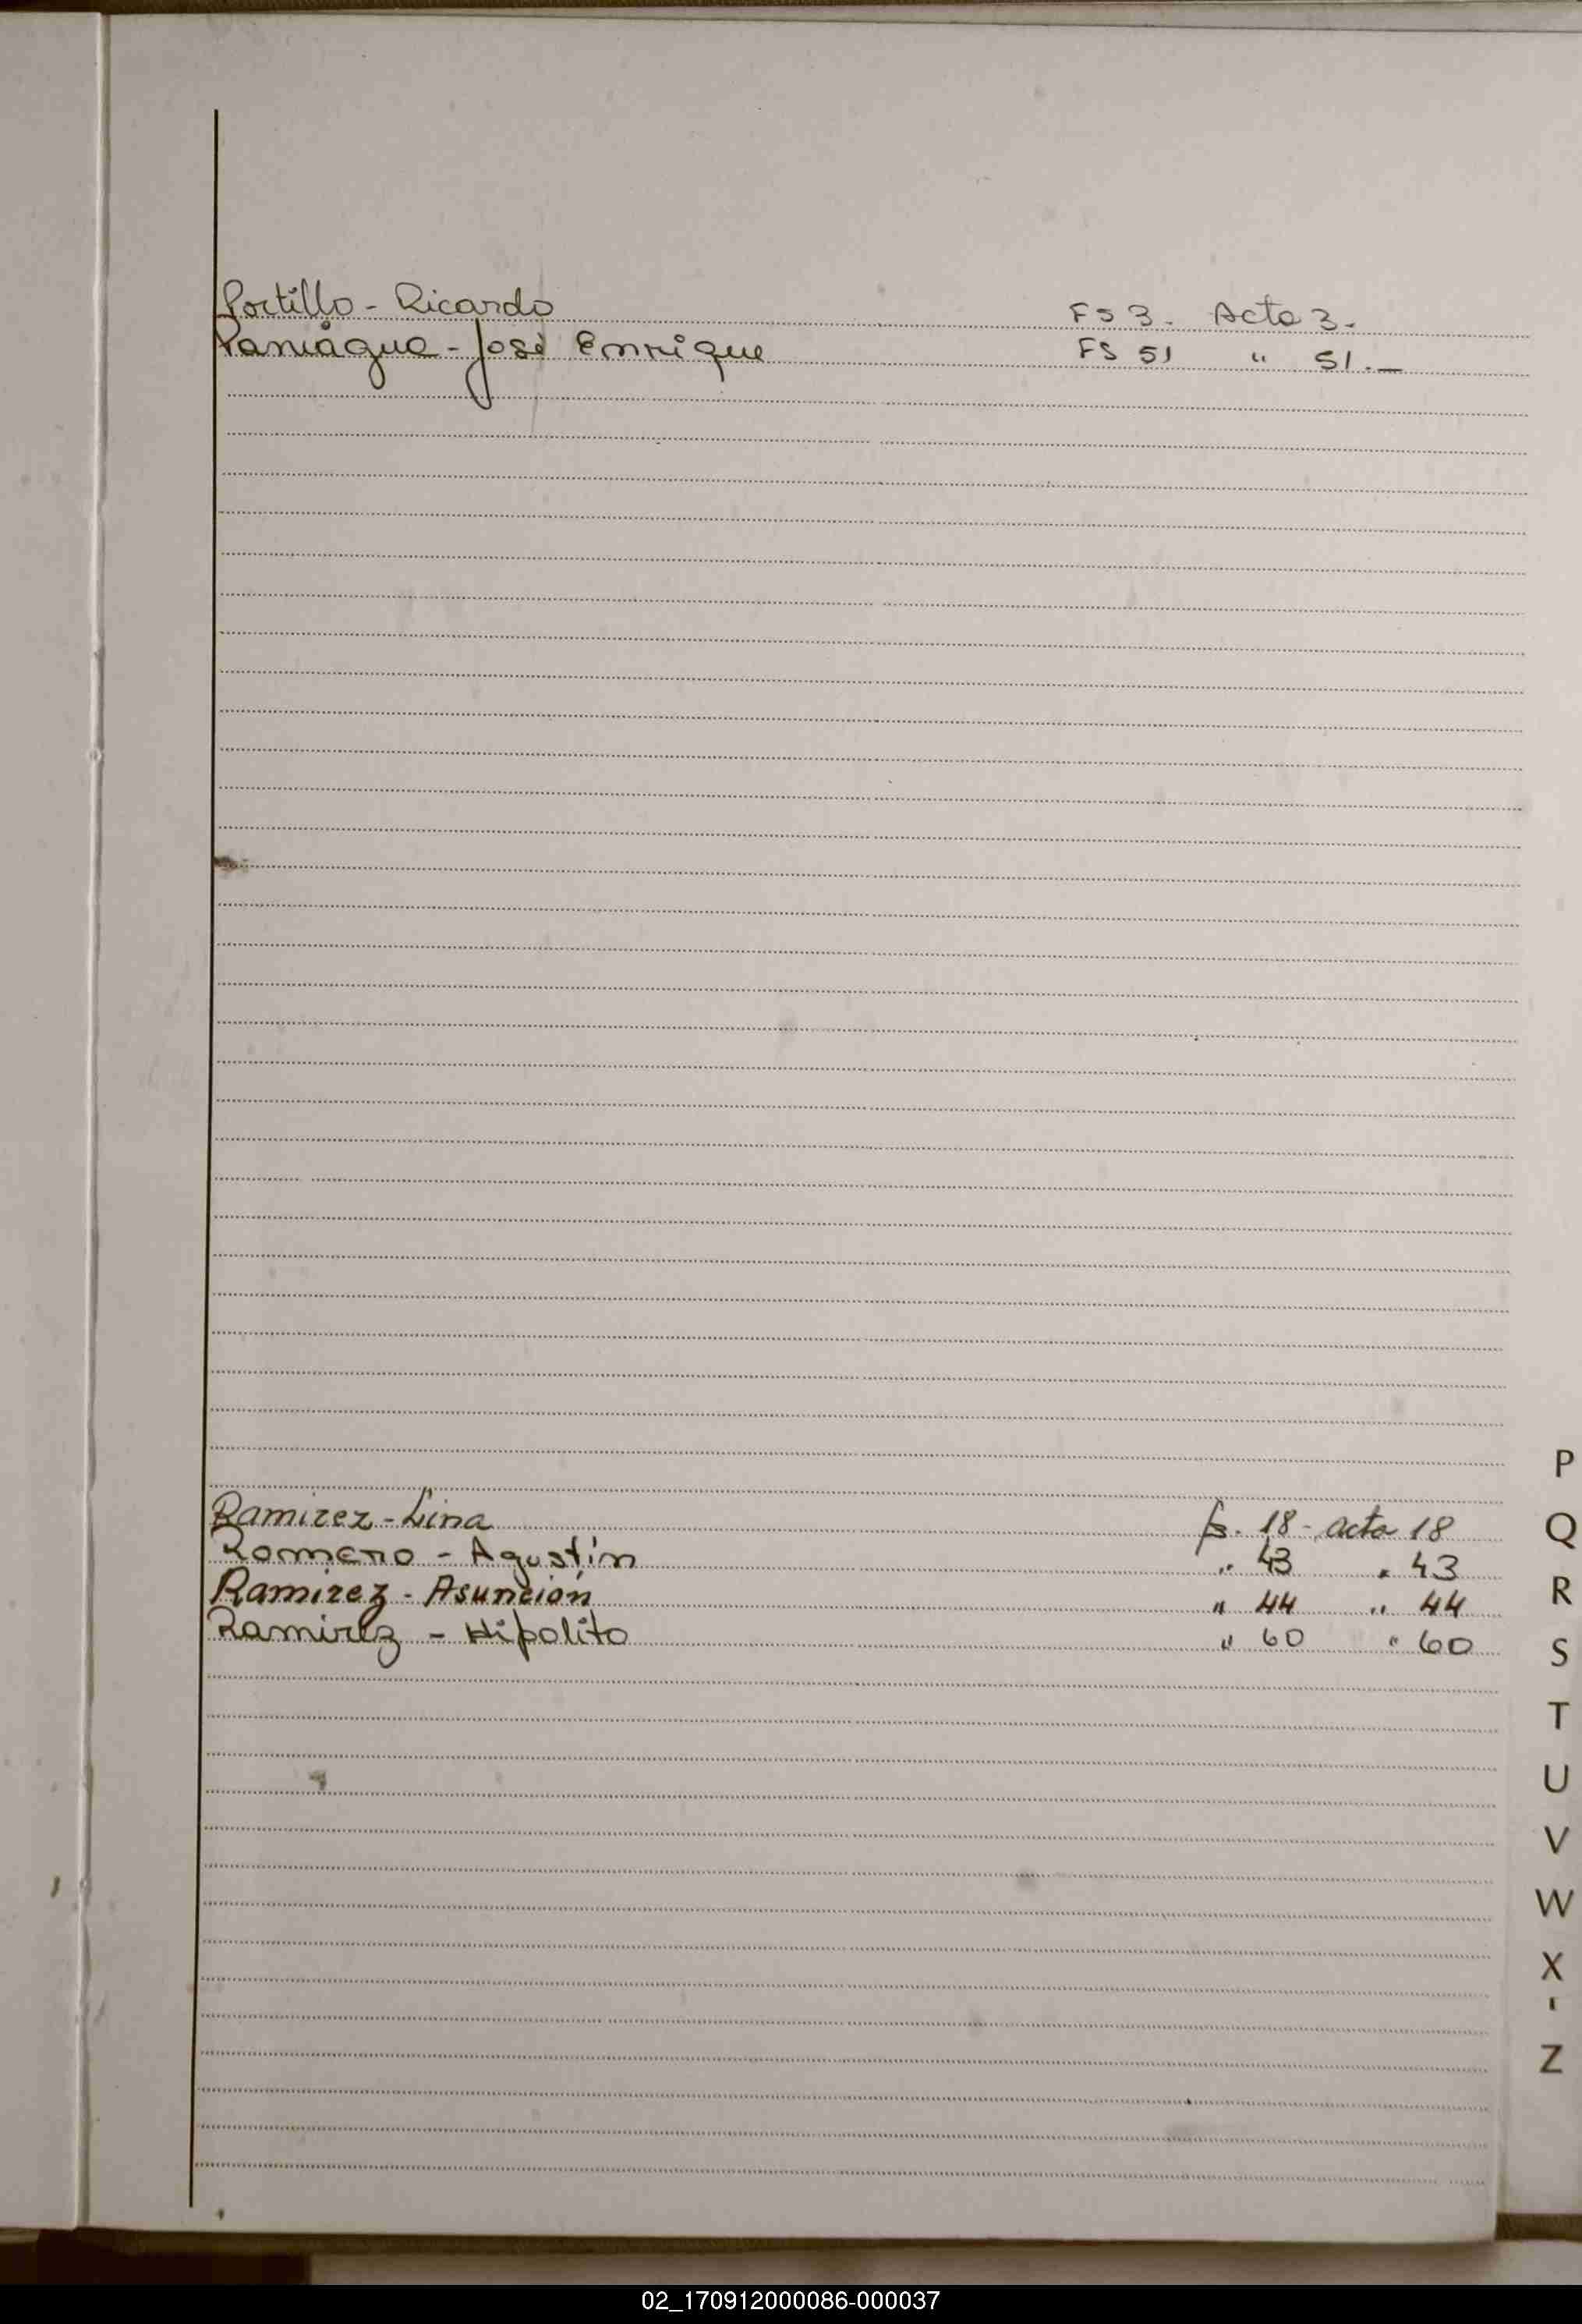 Portillo - Ricardo FS 3. Acta 3.
Paniagua - José Enrique FS 51 " 51.—
Ramirez - Lina fs. 18 - acta 18
Romero - Agustín " 43 " 43
Ramirez - Asunción " 44 " 44
Ramirez - Hipolito " 60 " 60
P
Q
R
S
T
U
V
W
X
'
Z
02_170912000086-000037